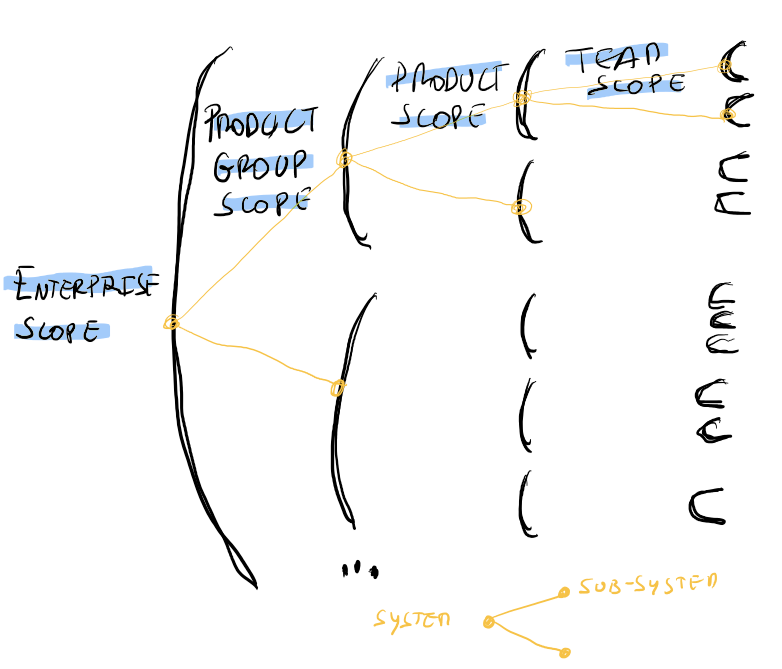 ENTERPRISE
SCOPE
PRODUCT
GROUP
SCOPE
PRODUCT
SCOPE
TEAM
SCOPE
...
SYSTEM
SUB-SYSTEM